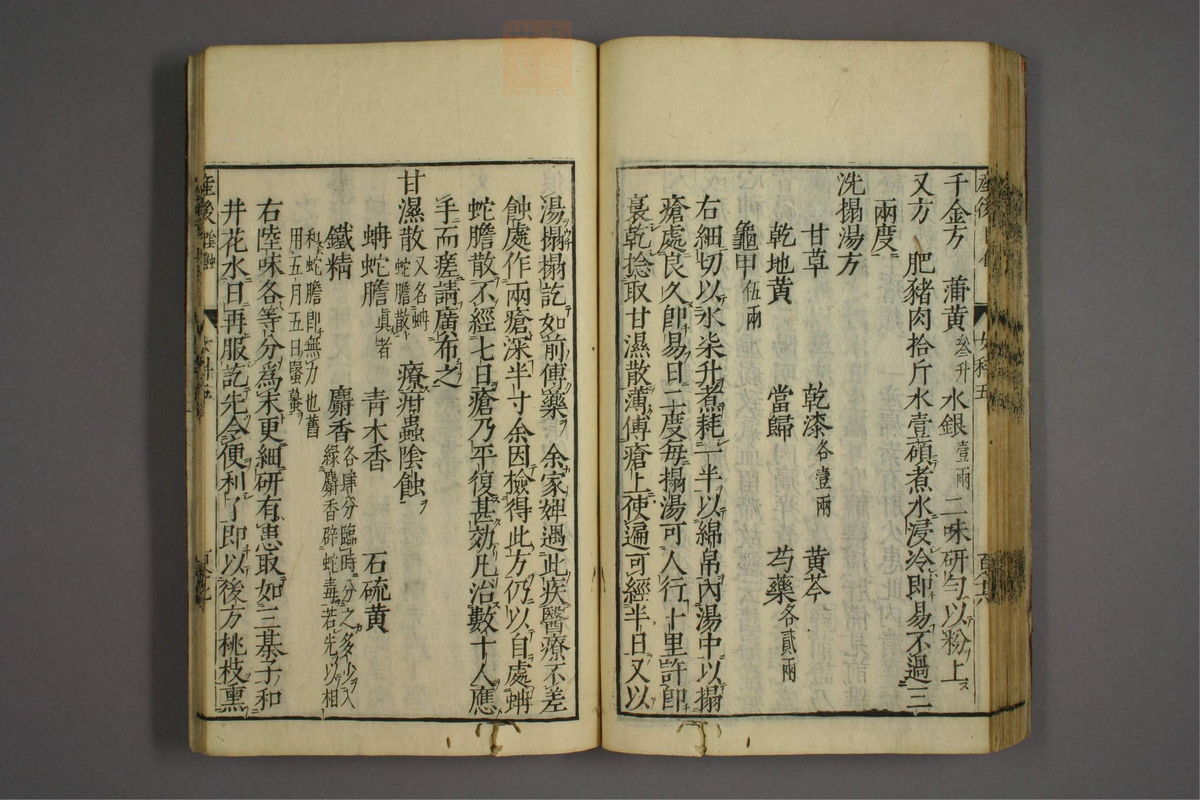 千金方 蒲黄叁升 水銀壹兩 二味研勻以粉上ス
又方 肥豬肉拾斤水壹碩煮水浸冷即易不過三
兩度
洗搨湯方
甘草 乾漆各壹兩 黄芩
乾地黄 當歸 芍藥各貳兩
龜甲伍兩
右細切以水柒升煮耗一半以綿帛內湯中以搨
瘡處良久即易日二度每搨湯可人行十里許即
裛乾捻取甘濕散薄傅瘡上使遍可經半日又以
湯搨搨訖如前傅藥 余家婢遇此疾醫療不差
蝕處作兩瘡深半寸余因檢得此方仍以自處蚺
蛇膽散不經七日瘡乃平復甚効凡治數十人應
手而瘥請廣布之
甘濕散又名蚺蛇膽散 療疳蟲陰蝕
蚺蛇膽真者 青木香 石硫黄
鐵精 麝香各肆分臨時分之多少入緣麝香辟蛇毒若先以相
和蛇膽即無力也舊用五月五日蝦蟇
右陸味各等分爲末更細研有患取如三棊子和
井花水日再服訖先令便利了即以後方桃枝熏
産後 陰蝕
女科五